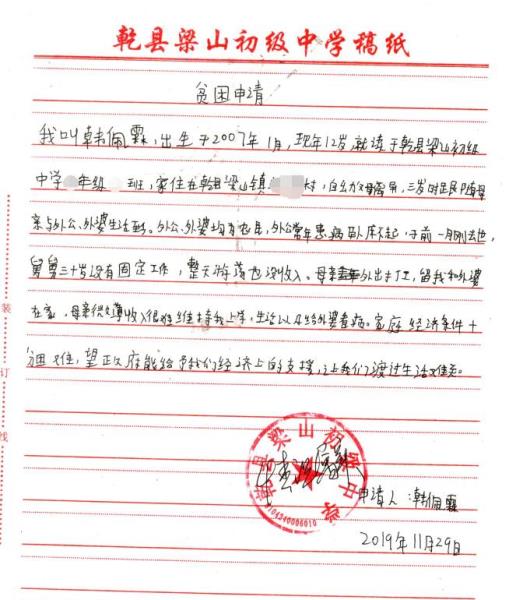 乾县梁山初级中学稿纸
贫困申请
我叫韩佩霖,出生于2007年1月,现年12岁,就读于乾县梁山初级
中学 年级 班,家住在乾县梁山镇 村,自幼父母离异,三岁时起跟随母
亲与外公、外婆生活至今。外公、外婆均有 ,外公常年患病卧床不起,于前一月刚去世,
舅舅三十岁没有固定工作,整天 也没收入。母亲 外出打工,留我和外婆
在家,母亲 薄收入很难维持我上学,生活以及给外婆看病。家庭经济条件十
分困难,望政府能给予我们经济上的支援,让我们渡过生活难关。
装
订
线
乾县梁山初级中学
申请人:韩佩霖
2019年11月29日